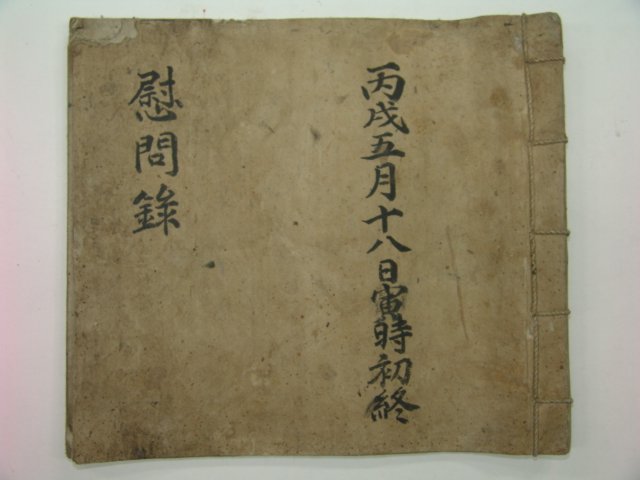 丙戌五月十八日寅時初終
慰問錄